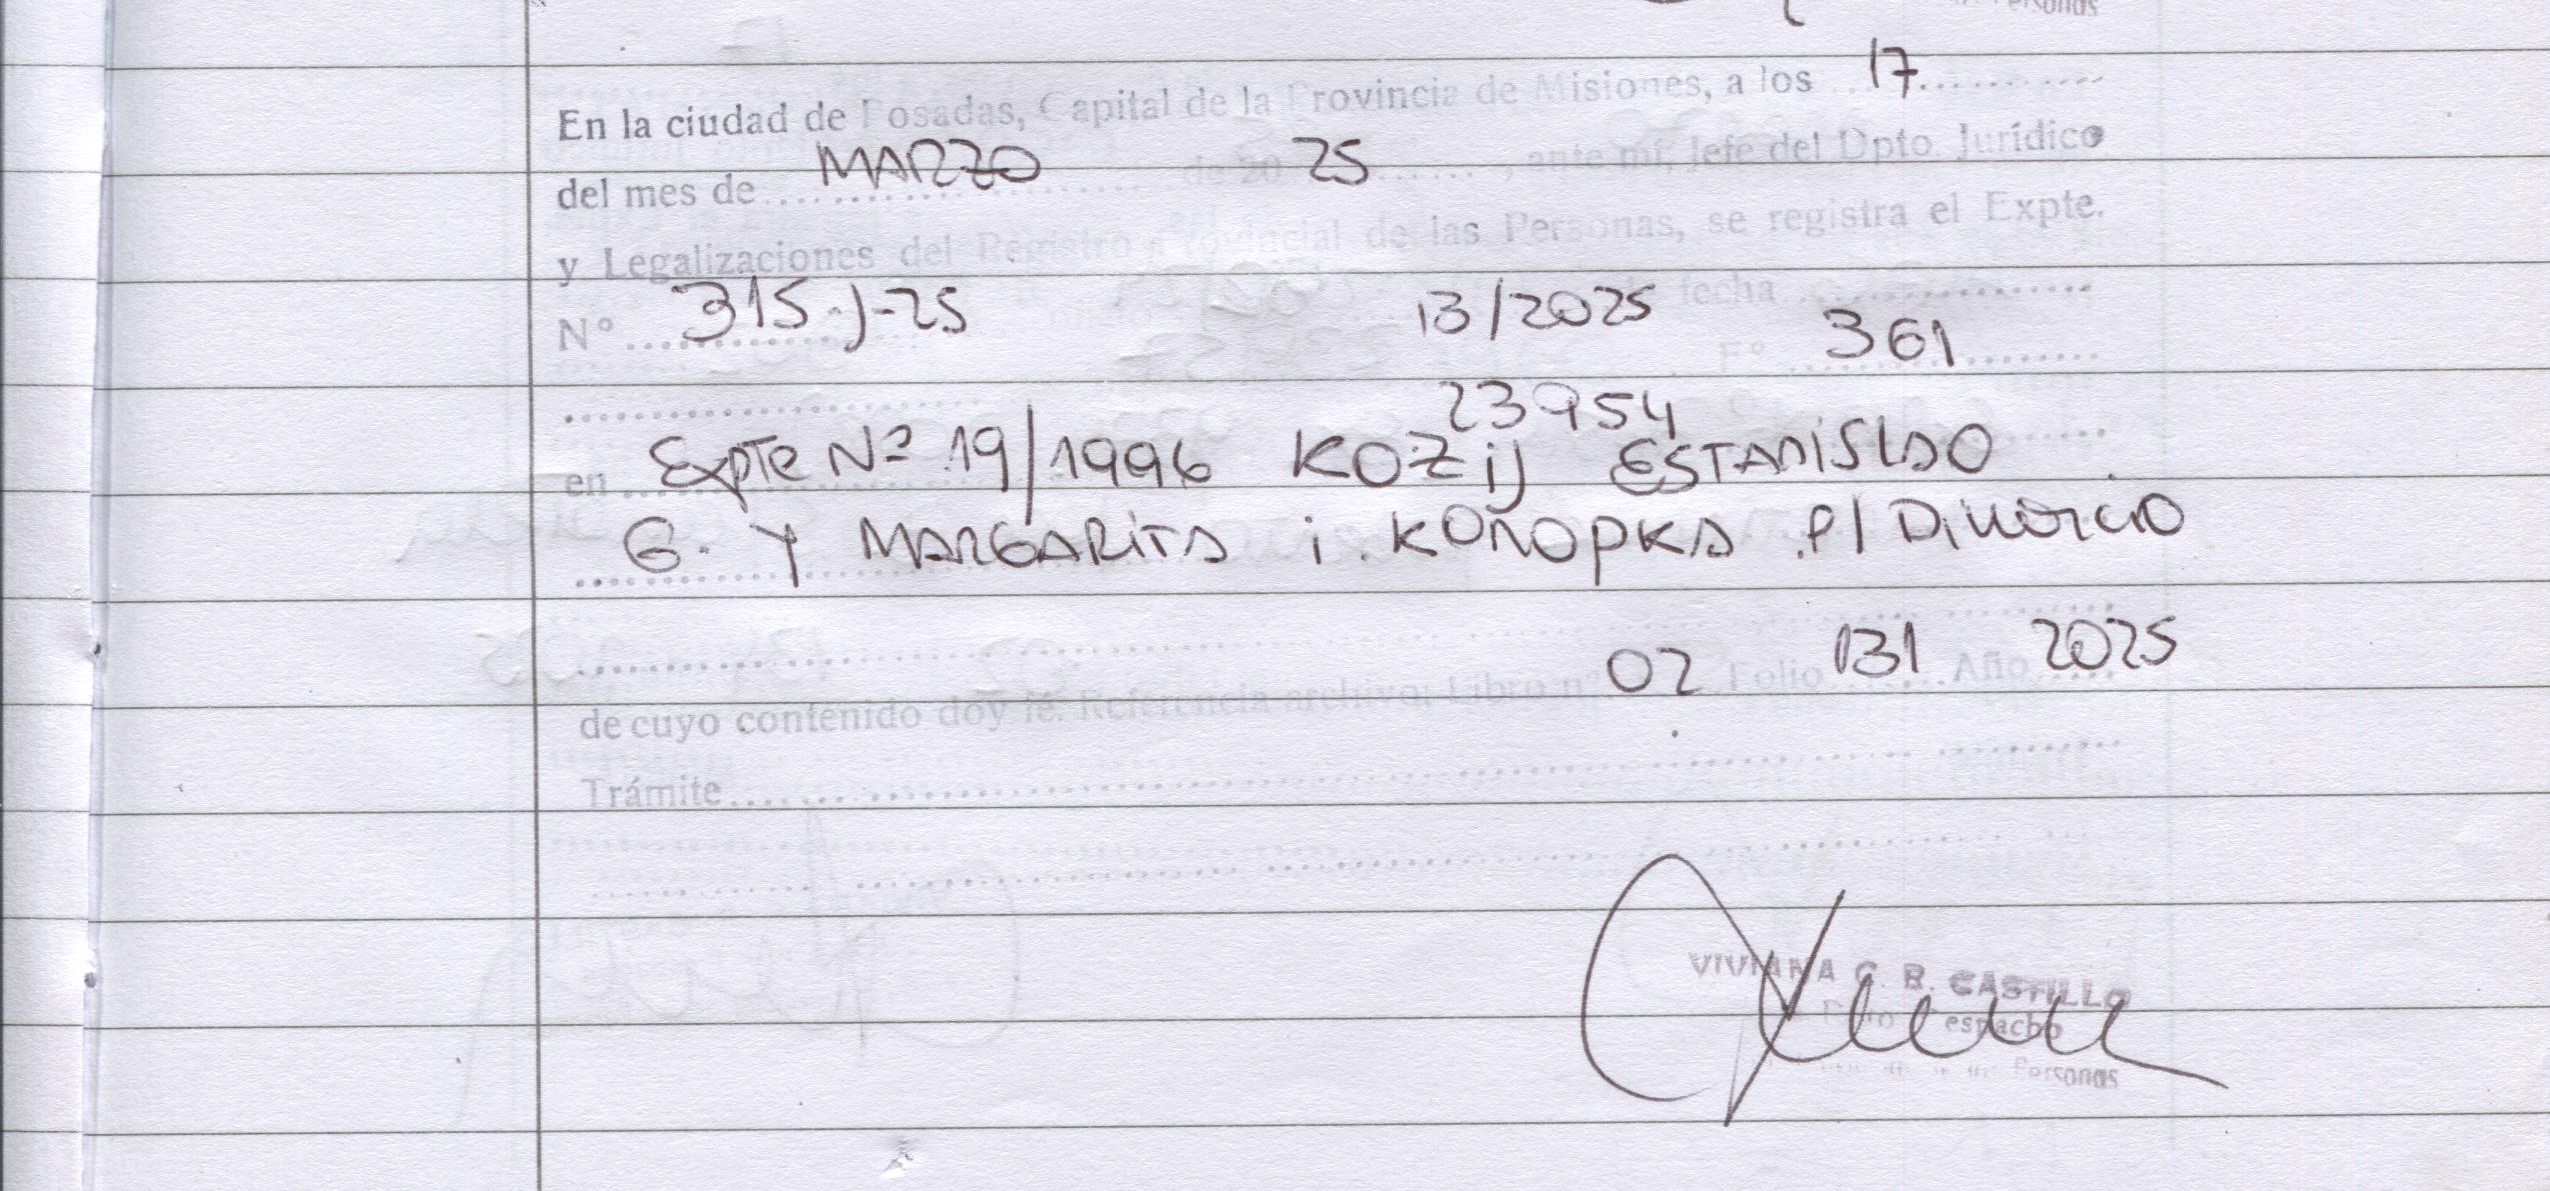 Personas
En la ciudad de Posadas, Capital de la Provincia de Misiones, a los 17
del mes de MARZO de 20 25, ante mi, Jefe del Dpto. Jurídico
y Legalizaciones del Registro Provincial de las Personas, se registra el Expte.
Nº 315-J-25 13/2025 fecha
Fº 361
23954
en Expte Nº 19/1996 KOZIJ ESTANISLAO
G. Y MARGARITA i. KONOPKA P/ DIVORCIO
02 Folio 131 Año 2025
de cuyo contenido doy fé. Referencia archivo: Libro nº
Trámite
VIVIANA C. B. CASTILLO
Dpto Despacho
de las Personas